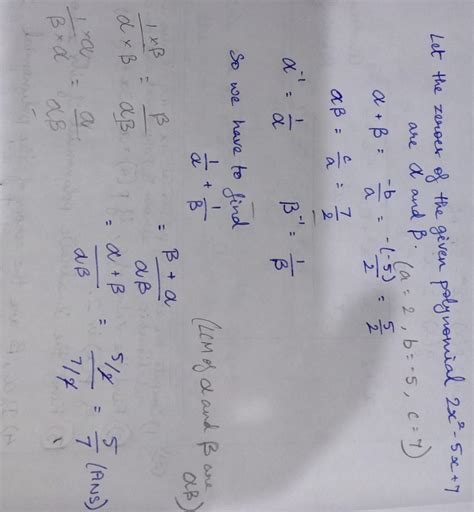 Let the zeroes of the given polynomial 2x² - 5x + 7
are α and β.
(a = 2, b = -5, c = 7)
α + β = -b/a = -(-5)/2 = 5/2
αβ = c/a = 7/2
α⁻¹ = 1/α β⁻¹ = 1/β
So we have to find
1/α + 1/β = β + α/αβ (LCM of α and β are αβ)
= α + β/αβ = 5/2/7/2 = 5/7 (ANS)
1×β/α×β = β/αβ
1×α/β×α = α/αβ